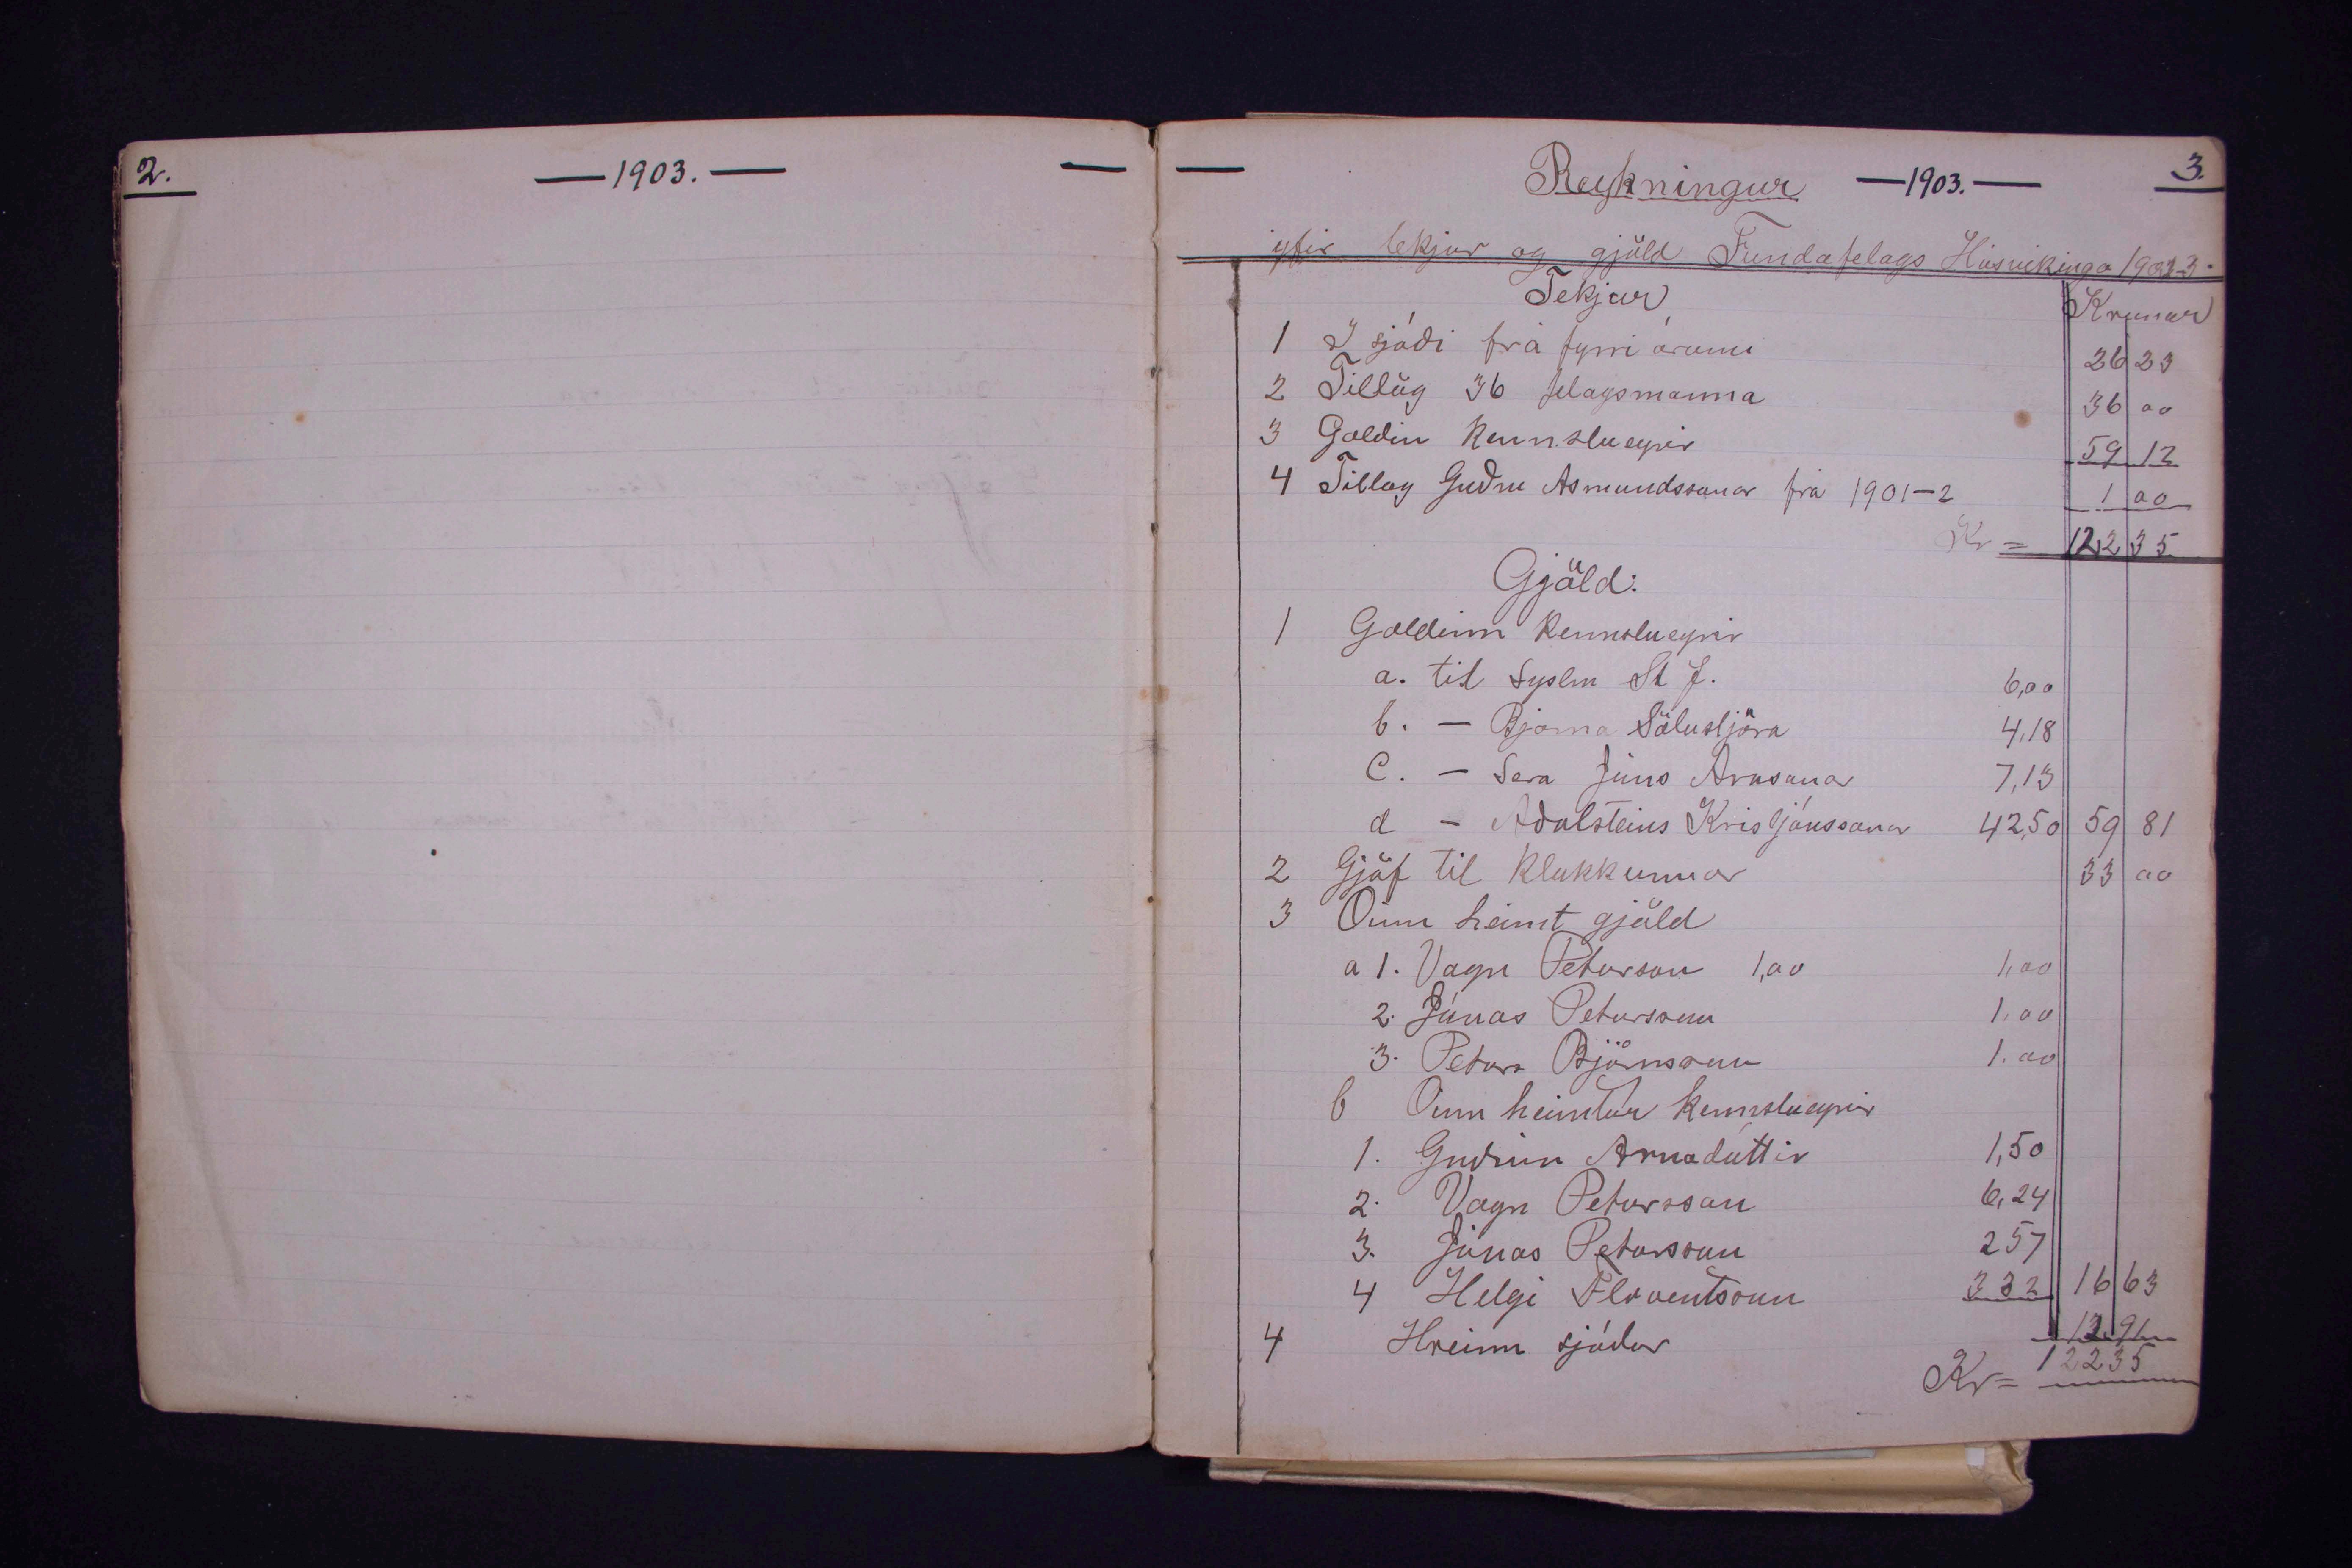 2.
— 1903. —
Reykningur — 1903. — 3.
yfir tekjur og gjöld Fundafelags Húsvikinga 1902-3.
Tekjur
Krunur
1 I sjóði frá fyrri árum 26 23
2 Tillög 36 felagsmanna 36 00
3 Goldin Kennslueyrir 59 12
4 Tillag Guðm Asmundssonar frá 1901-2 1 00
Kr = 122 35
Gjöld:
1 Goldinn Kennslueyrir
a. til Syslm St J. 6,00
b. — Bjarna Sölustjóra 4,18
C. — Sera Jóns Arasonar 7,13
d — Aðalsteins Kristjánssonar 42,50 59 81
2 Gjöf til Klukkunnar 33 00
3 Óinn heimt gjöld
a 1. Vagn Petursson 1,00 1,00
2. Jónas Petursson 1.00
3. Petur Björnsson 1.00
b Óinn heimtur kennslueyrir
1. Guðrún Arnadóttir 1,50
2. Vagn Petursson 6,24
3. Jónas Petursson 257
4 Helgi Flóventsson 332 16 63
4 Hreinn sjóður 12 91
Kr = 12235